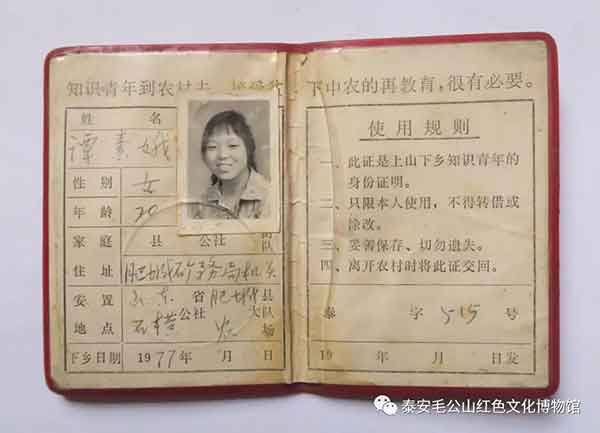 知识青年到农村去，接受贫下中农的再教育，很有必要。
姓 名
谭素娥
性 别 女
年 龄 20
家 庭 县 公社 队
住 址 肥城矿务局机关
安 置 山东省肥城县
地 点 石横公社 大队 场
下乡日期 1977年 月 日
使用规则
一、此证是上山下乡知识青年的
身份证明。
二、只限本人使用，不得转借或
涂改。
三、妥善保存、切勿遗失。
四、离开农村时将此证交回。
泰 字 515 号
19 年 月 日发
泰安毛公山红色文化博物馆